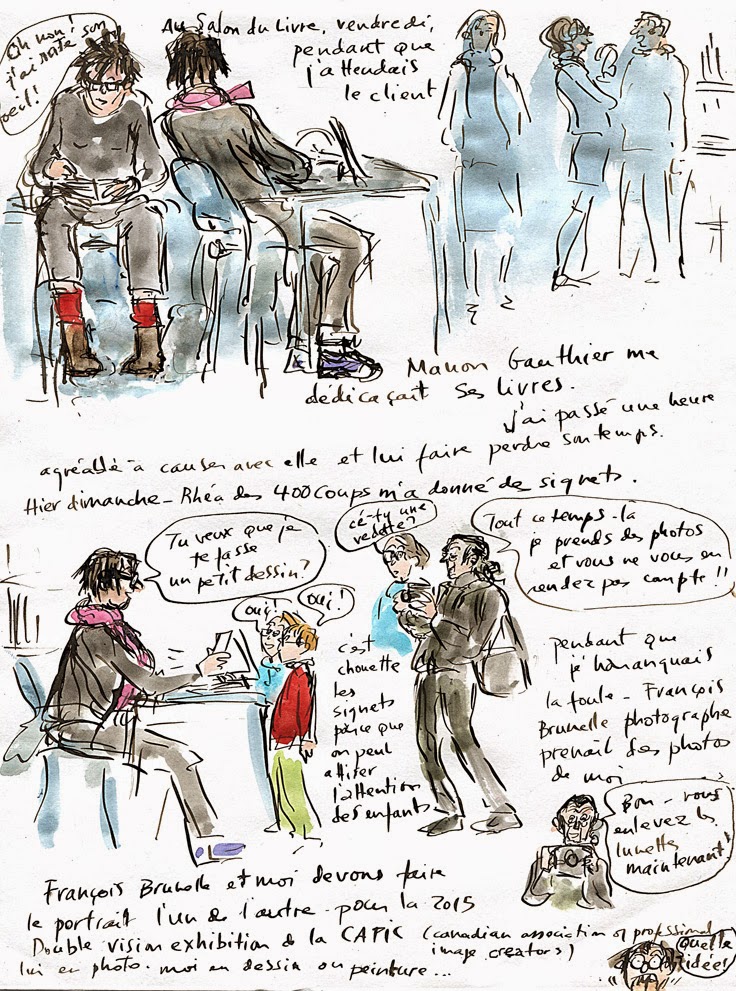 Oh non!
j'ai raté son
oeil!
Au Salon du Livre, vendredi,
pendant que
j'attendais
le client
Manon Gauthier me
dédicaçait ses livres.
j'ai passé une heure
agréable à causer avec elle et lui faire perdre son temps.
Hier dimanche - Rhéa des 400 coups m'a donné des signets.
Tu veux que je
te fasse
un petit dessin?
oui!
oui!
c'est
chouette
les
signets
parce que
on peut
attirer
l'attention
des enfants
cé-ty une
vedette?
Tout ce temps-là
je prends des photos
et vous ne vous en
rendez pas compte!!
pendant que
je haranguais
la foule - François
Brunelle photographe
prenait des photos
de moi
Bon - vous
enlevez les
lunettes
maintenant!
François Brunelle et moi devons faire
le portrait l'un de l'autre pour la 2015
Double vision exhibition de la CAPIC (canadian association of professional
image creators)
lui en photo. moi en dessin ou peinture...
Quelle
idée!